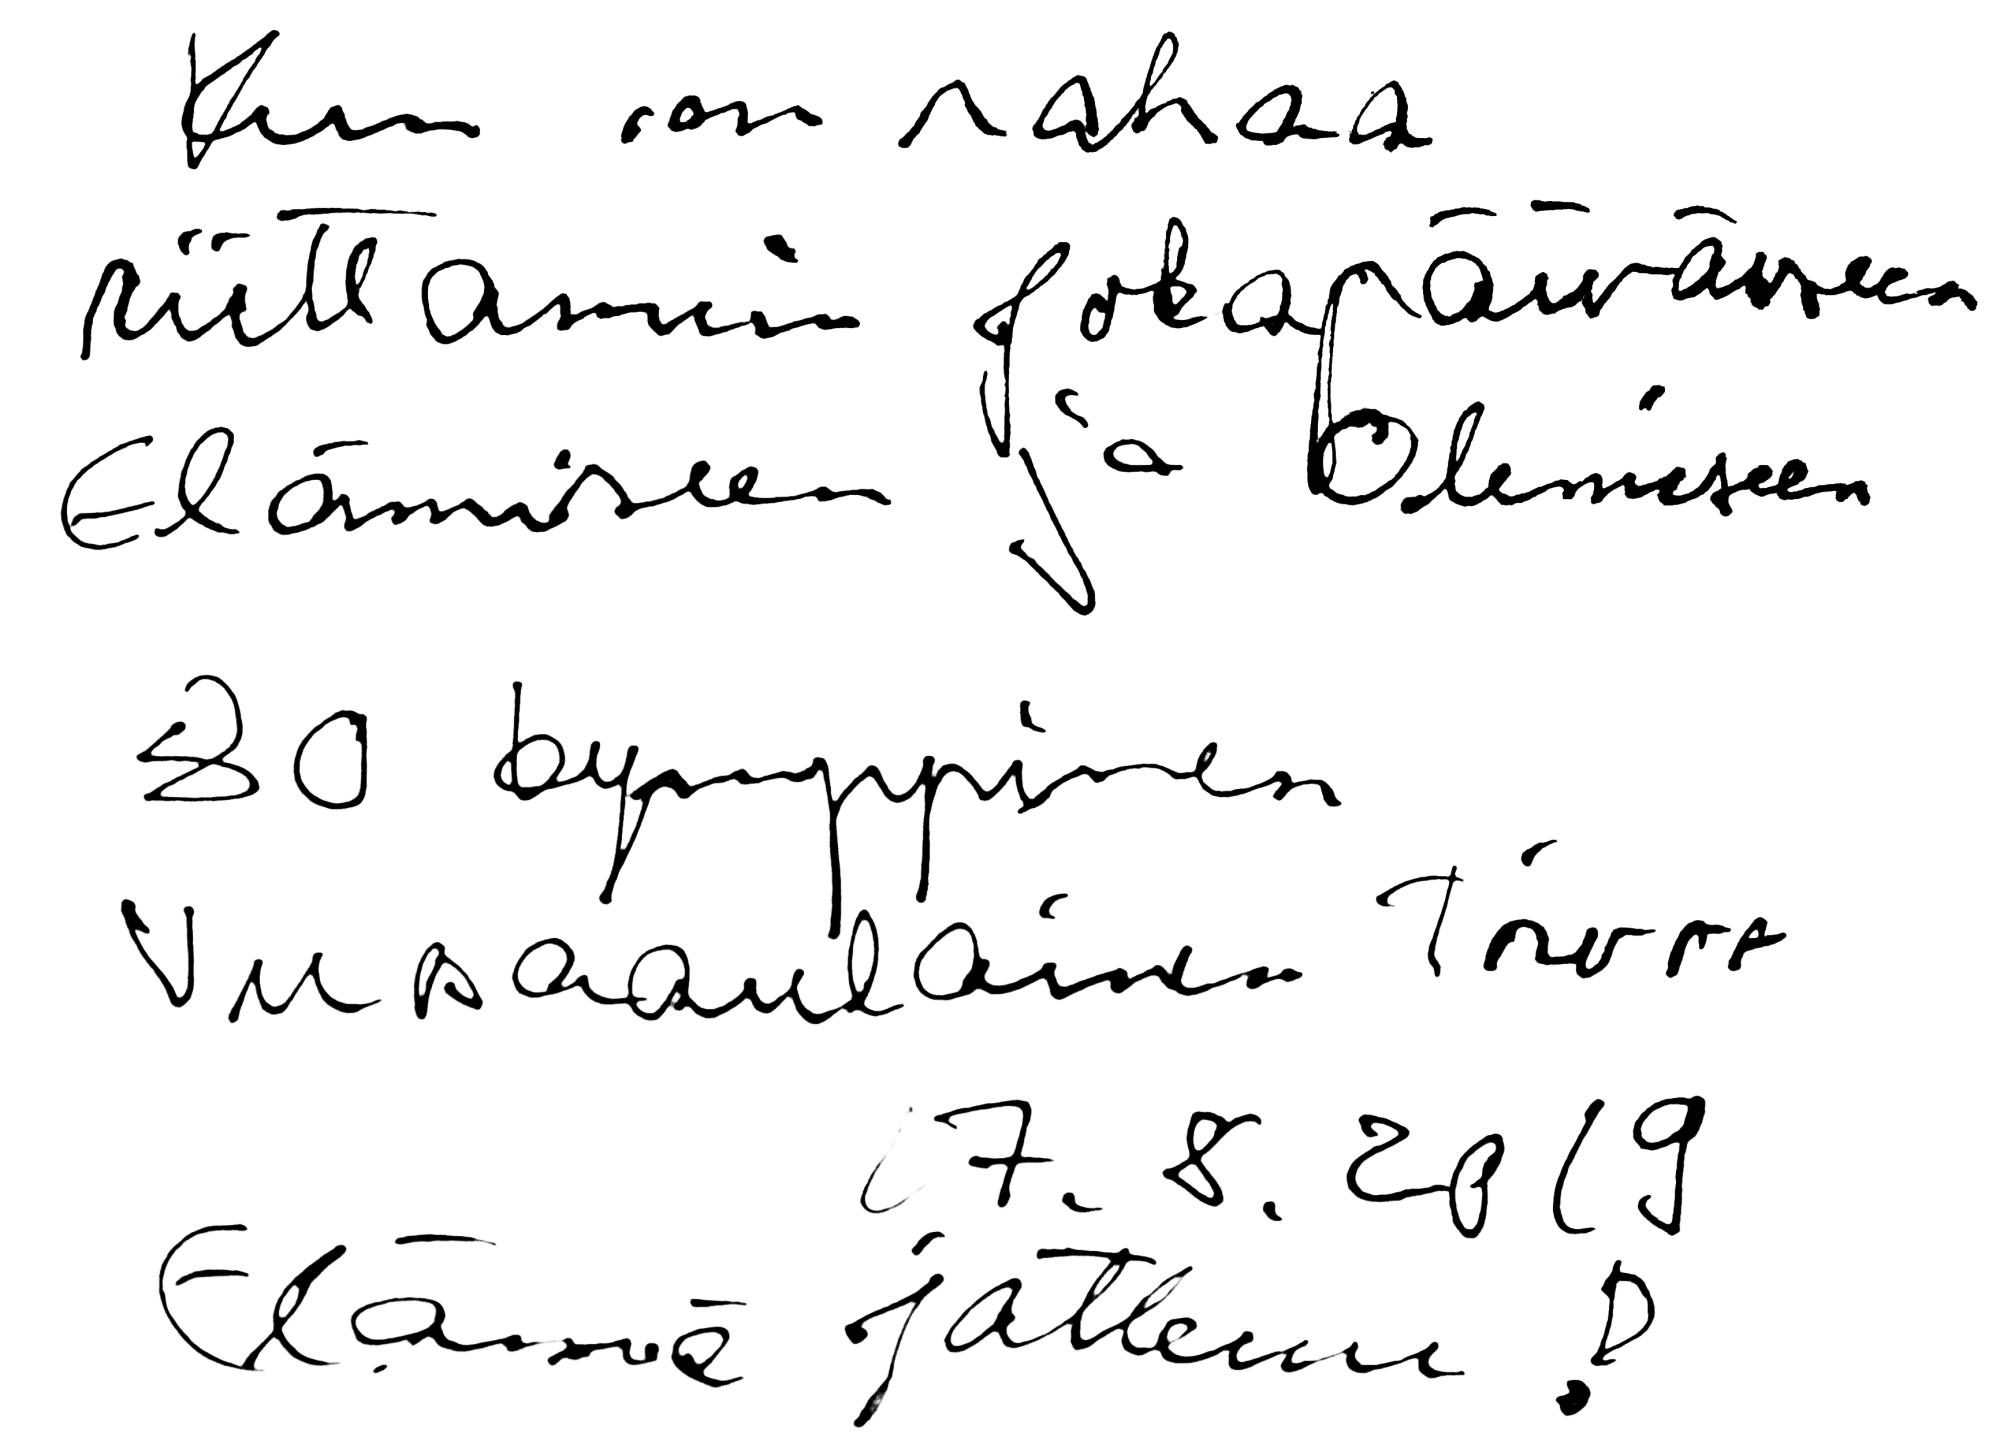 Kun on rahaa
riittämiin jokapäiväiseen
Elämiseen ja Olemiseen
30 kymppinen
Vuosaarelainen
17.8.2019
Elämä jatkuu!